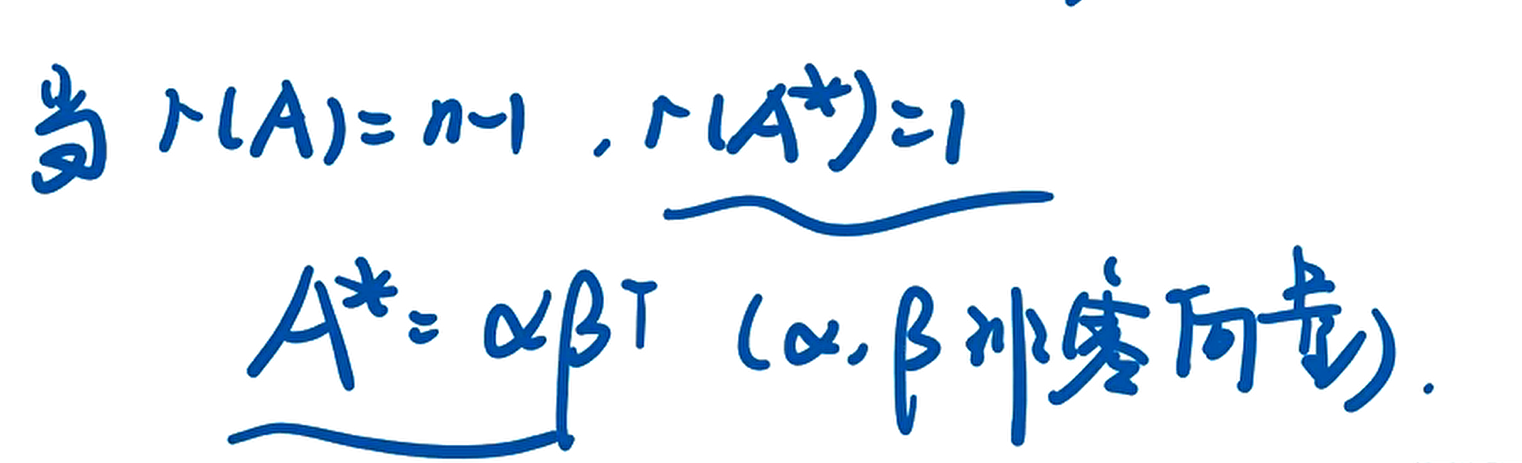 当 r(A)=n-1 , r(A*)=1
A*=αβᵀ (α,β非零向量).